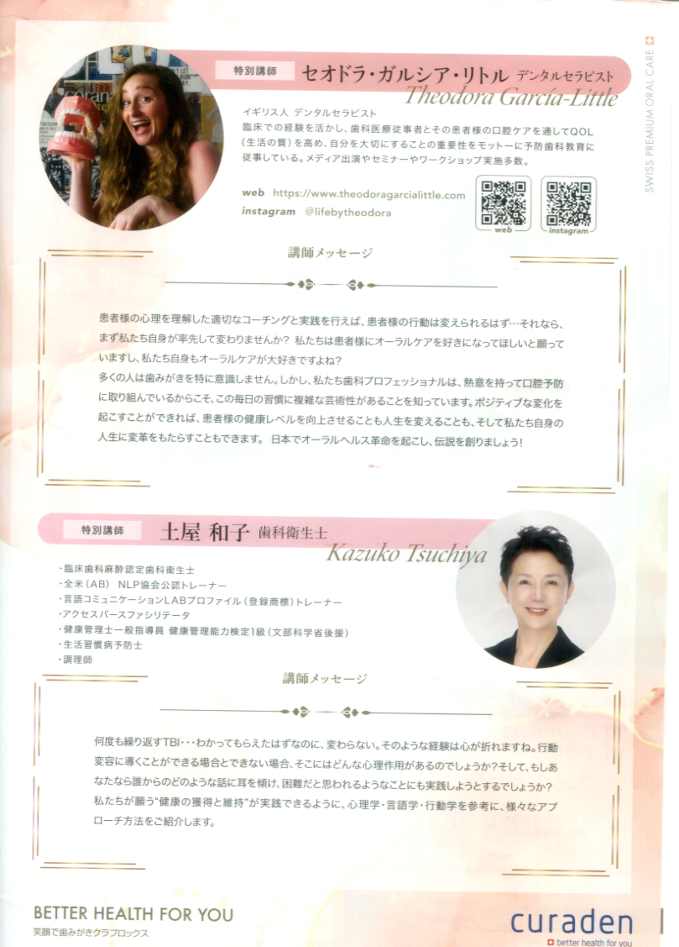 SWISS PREMIUM ORAL CARE
特別講師 セオドラ・ガルシア・リトル デンタルセラピスト
Theodora García-Little
イギリス人 デンタルセラピスト
臨床での経験を活かし、歯科医療従事者とその患者様の口腔ケアを通してQOL
(生活の質)を高め、自分を大切にすることの重要性をモットーに予防歯科教育に
従事している。メディア出演やセミナーやワークショップ実施多数。
web https://www.theodoragarcialittle.com
instagram @lifebytheodora
web
instagram
講師メッセージ
患者様の心理を理解した適切なコーチングと実践を行えば、患者様の行動は変えられるはず…それなら、
まず私たち自身が率先して変わりませんか? 私たちは患者様にオーラルケアを好きになってほしいと願って
いますし、私たち自身もオーラルケアが大好きですよね?
多くの人は歯みがきを特に意識しません。しかし、私たち歯科プロフェッショナルは、熱意を持って口腔予防
に取り組んでいるからこそ、この毎日の習慣に複雑な芸術性があることを知っています。ポジティブな変化を
起こすことができれば、患者様の健康レベルを向上させることも人生を変えることも、そして私たち自身の
人生に変革をもたらすこともできます。 日本でオーラルヘルス革命を起こし、伝説を創りましょう!
特別講師 土屋 和子 歯科衛生士
Kazuko Tsuchiya
・臨床歯科麻酔認定歯科衛生士
・全米(AB) NLP協会公認トレーナー
・言語コミュニケーションLABプロファイル(登録商標)トレーナー
・アクセスバースファシリテータ
・健康管理士一般指導員 健康管理能力検定1級(文部科学省後援)
・生活習慣病予防士
・調理師
講師メッセージ
何度も繰り返すTBI・・・わかってもらえたはずなのに、変わらない。そのような経験は心が折れますね。行動
変容に導くことができる場合とできない場合、そこにはどんな心理作用があるのでしょうか?そして、もしあ
なたなら誰からのどのような話に耳を傾け、困難だと思われるようなことにも実践しようとするでしょうか?
私たちが願う"健康の獲得と維持"が実践できるように、心理学・言語学・行動学を参考に、様々なアプ
ローチ方法をご紹介します。
BETTER HEALTH FOR YOU
笑顔で歯みがきクラプロックス
curaden
better health for you